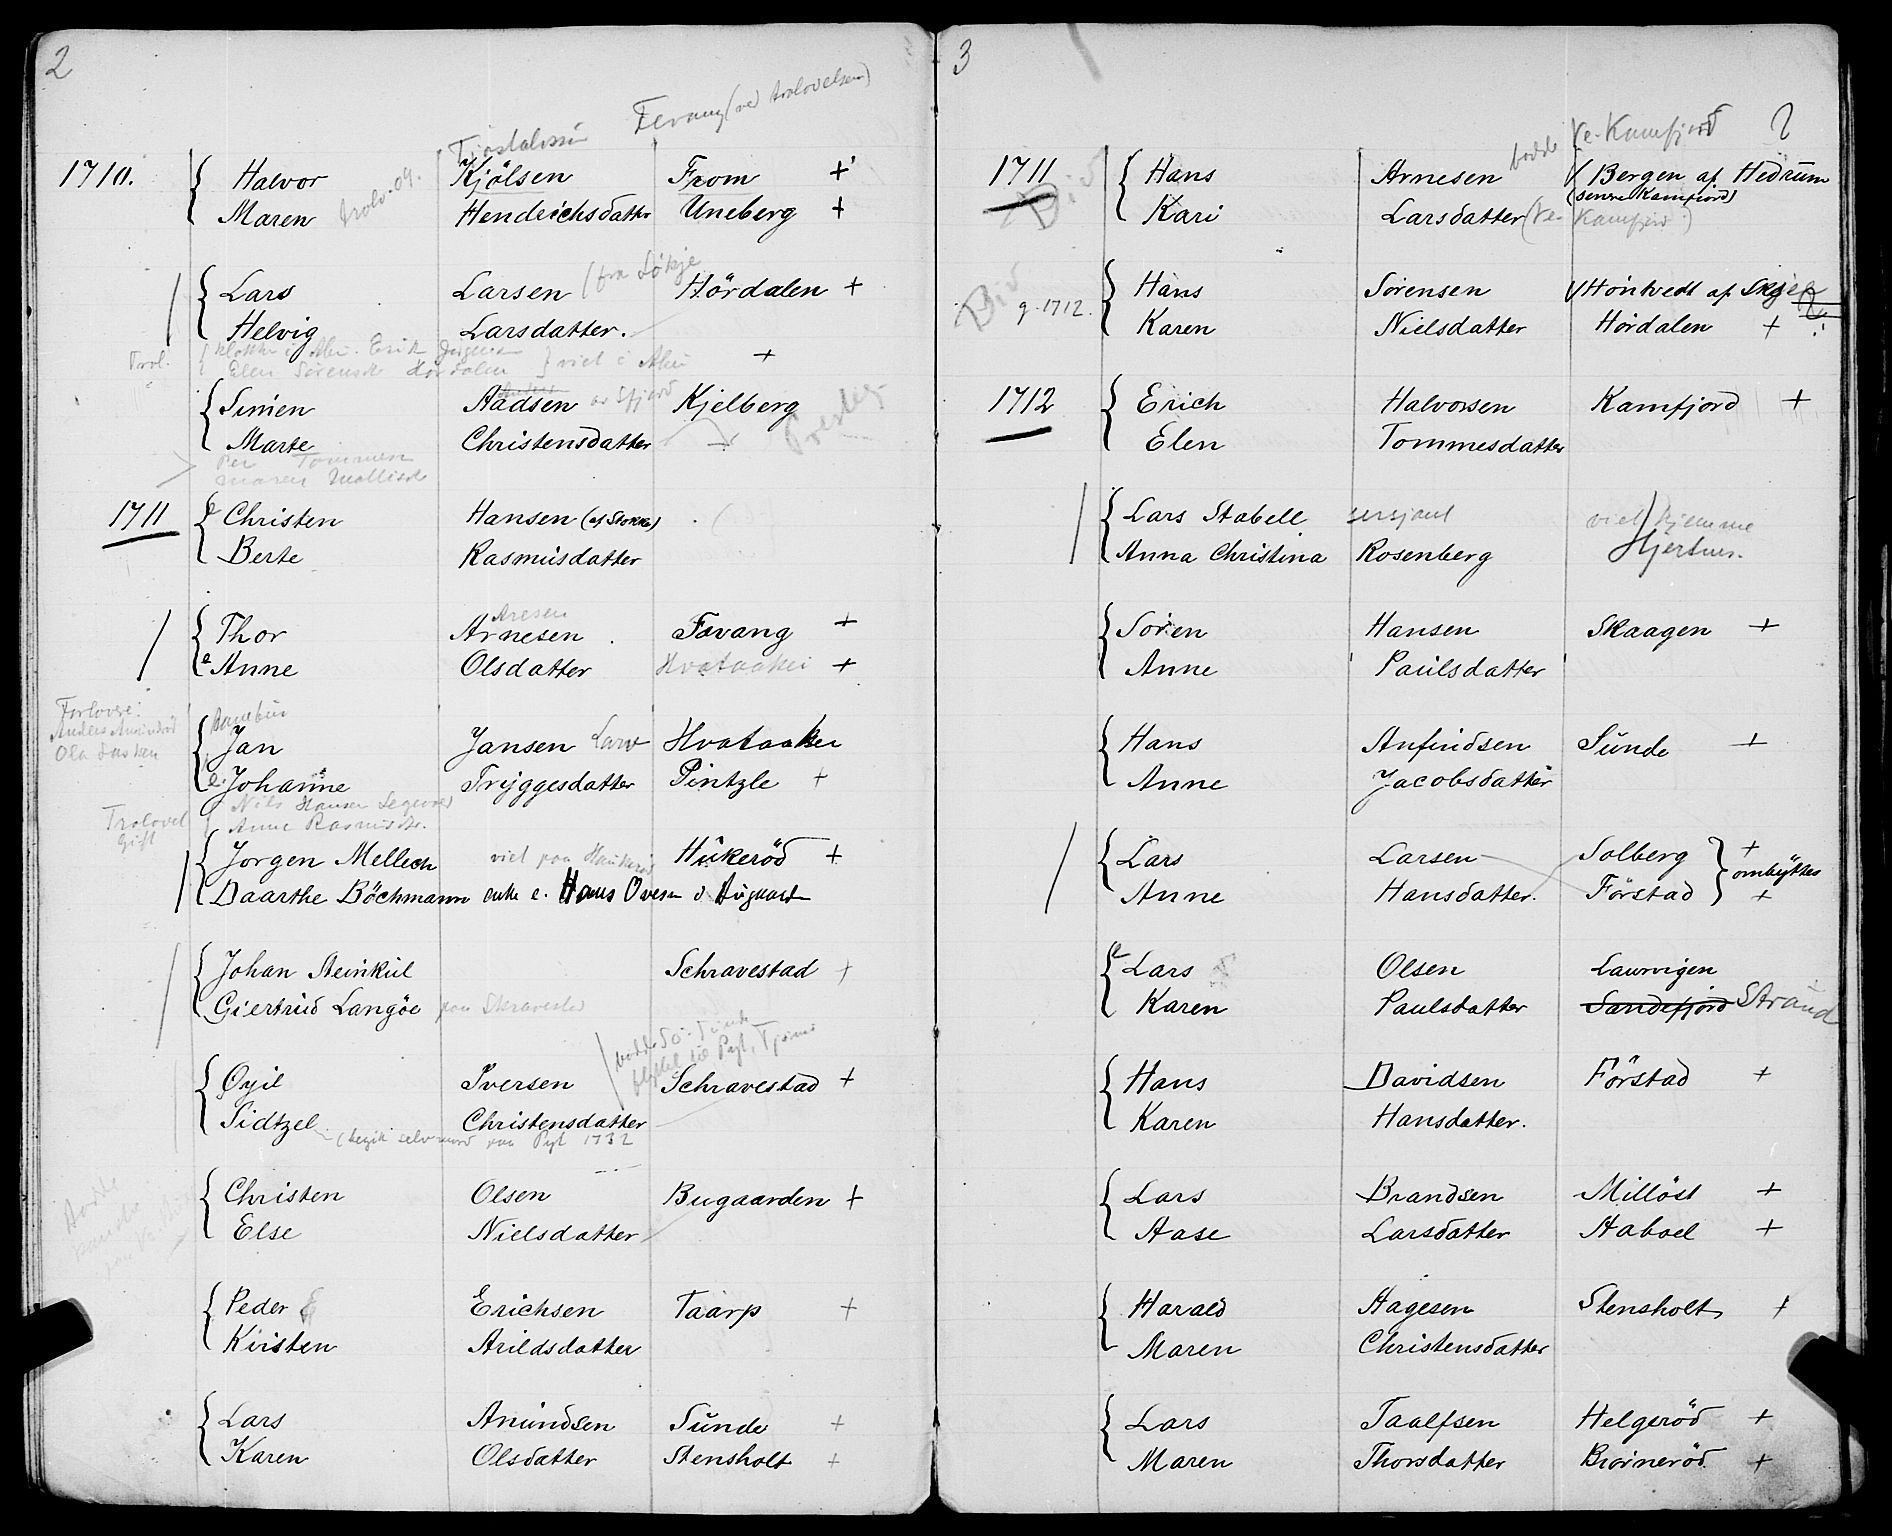 2
Fevang (ved trolovelsen)
1710. Halvor Kjölsen From +
Maren trolov. 09. Hendrichsdatter Uneberg +
Lars Larsen (fra Hördalen +
Helvig Larsdatter.
Trol. Klokker i Erik
Elen Sörensdr Hördalen viet i +
Simen Aadsen Kjelberg
Marte Christensdatter
Per Tommesen
Maren
1711 Christen Hansen (af Stokke)
Berte Rasmusdatter
Aresen
Thor Arnesen Favang +
e Anne Olsdatter Hvataaker +
Forlovere:
Anders
Ola
Jan Jansen Larv Hvataaker
e. Johanne Tryggesdatter Pintzle +
Trolovet Nils Hansen
Gift Anne Rasmusdr.
Jörgen Mellech viet paa Hukeröd +
Daarthe Böchmann enke e. Hans Oversen
Johan Steinkul Schravestad +
Giertrud Langöe paa Skravestad
Oyil Iversen Schravestad +
Sidtzel Christensdatter
(begik selvmord paa 1732
Christen Olsen Bugaarden +
Else Nielsdatter
Peder Erichsen Taarp +
Kirsten Arildsdatter
Lars Anundsen Sunde +
Karen Olsdatter Stensholt +
3
bodde Ve-Kamfjord ?
1711 Hans Arnesen Bergen af Hedrum
(senere Kamfjord)
Kari Larsdatter (Ve-Kamfjord)
g. 1712. Hans Sörensen Hontvedt af
Karen Nielsdatter Hördalen +
1712 Erich Halvorsen Kamfjord +
Elen Tommesdatter
Lars Stabell sersjant viet hjemme
Anna Christina Rosenberg Hjertnes.
Sören Hansen Skaagen +
Anne Paulsdatter
Hans Anfindsen Sunde +
Anne Jacobsdatter
Lars Larsen Solberg + ombyttes
Anne Hansdatter. Förstad +
Lars Olsen Laurvigen
Karen Paulsdatter Sandefjord Strand
Hans Davidsen Förstad +
Karen Hansdatter.
Lars Brandsen Millöst +
Aase Larsdatter Haboel +
Harald Hagesen Stensholt +
Maren Christensdatter
Lars Taalfsen Helgeröd +
Maren Thorsdatter Biörneröd +